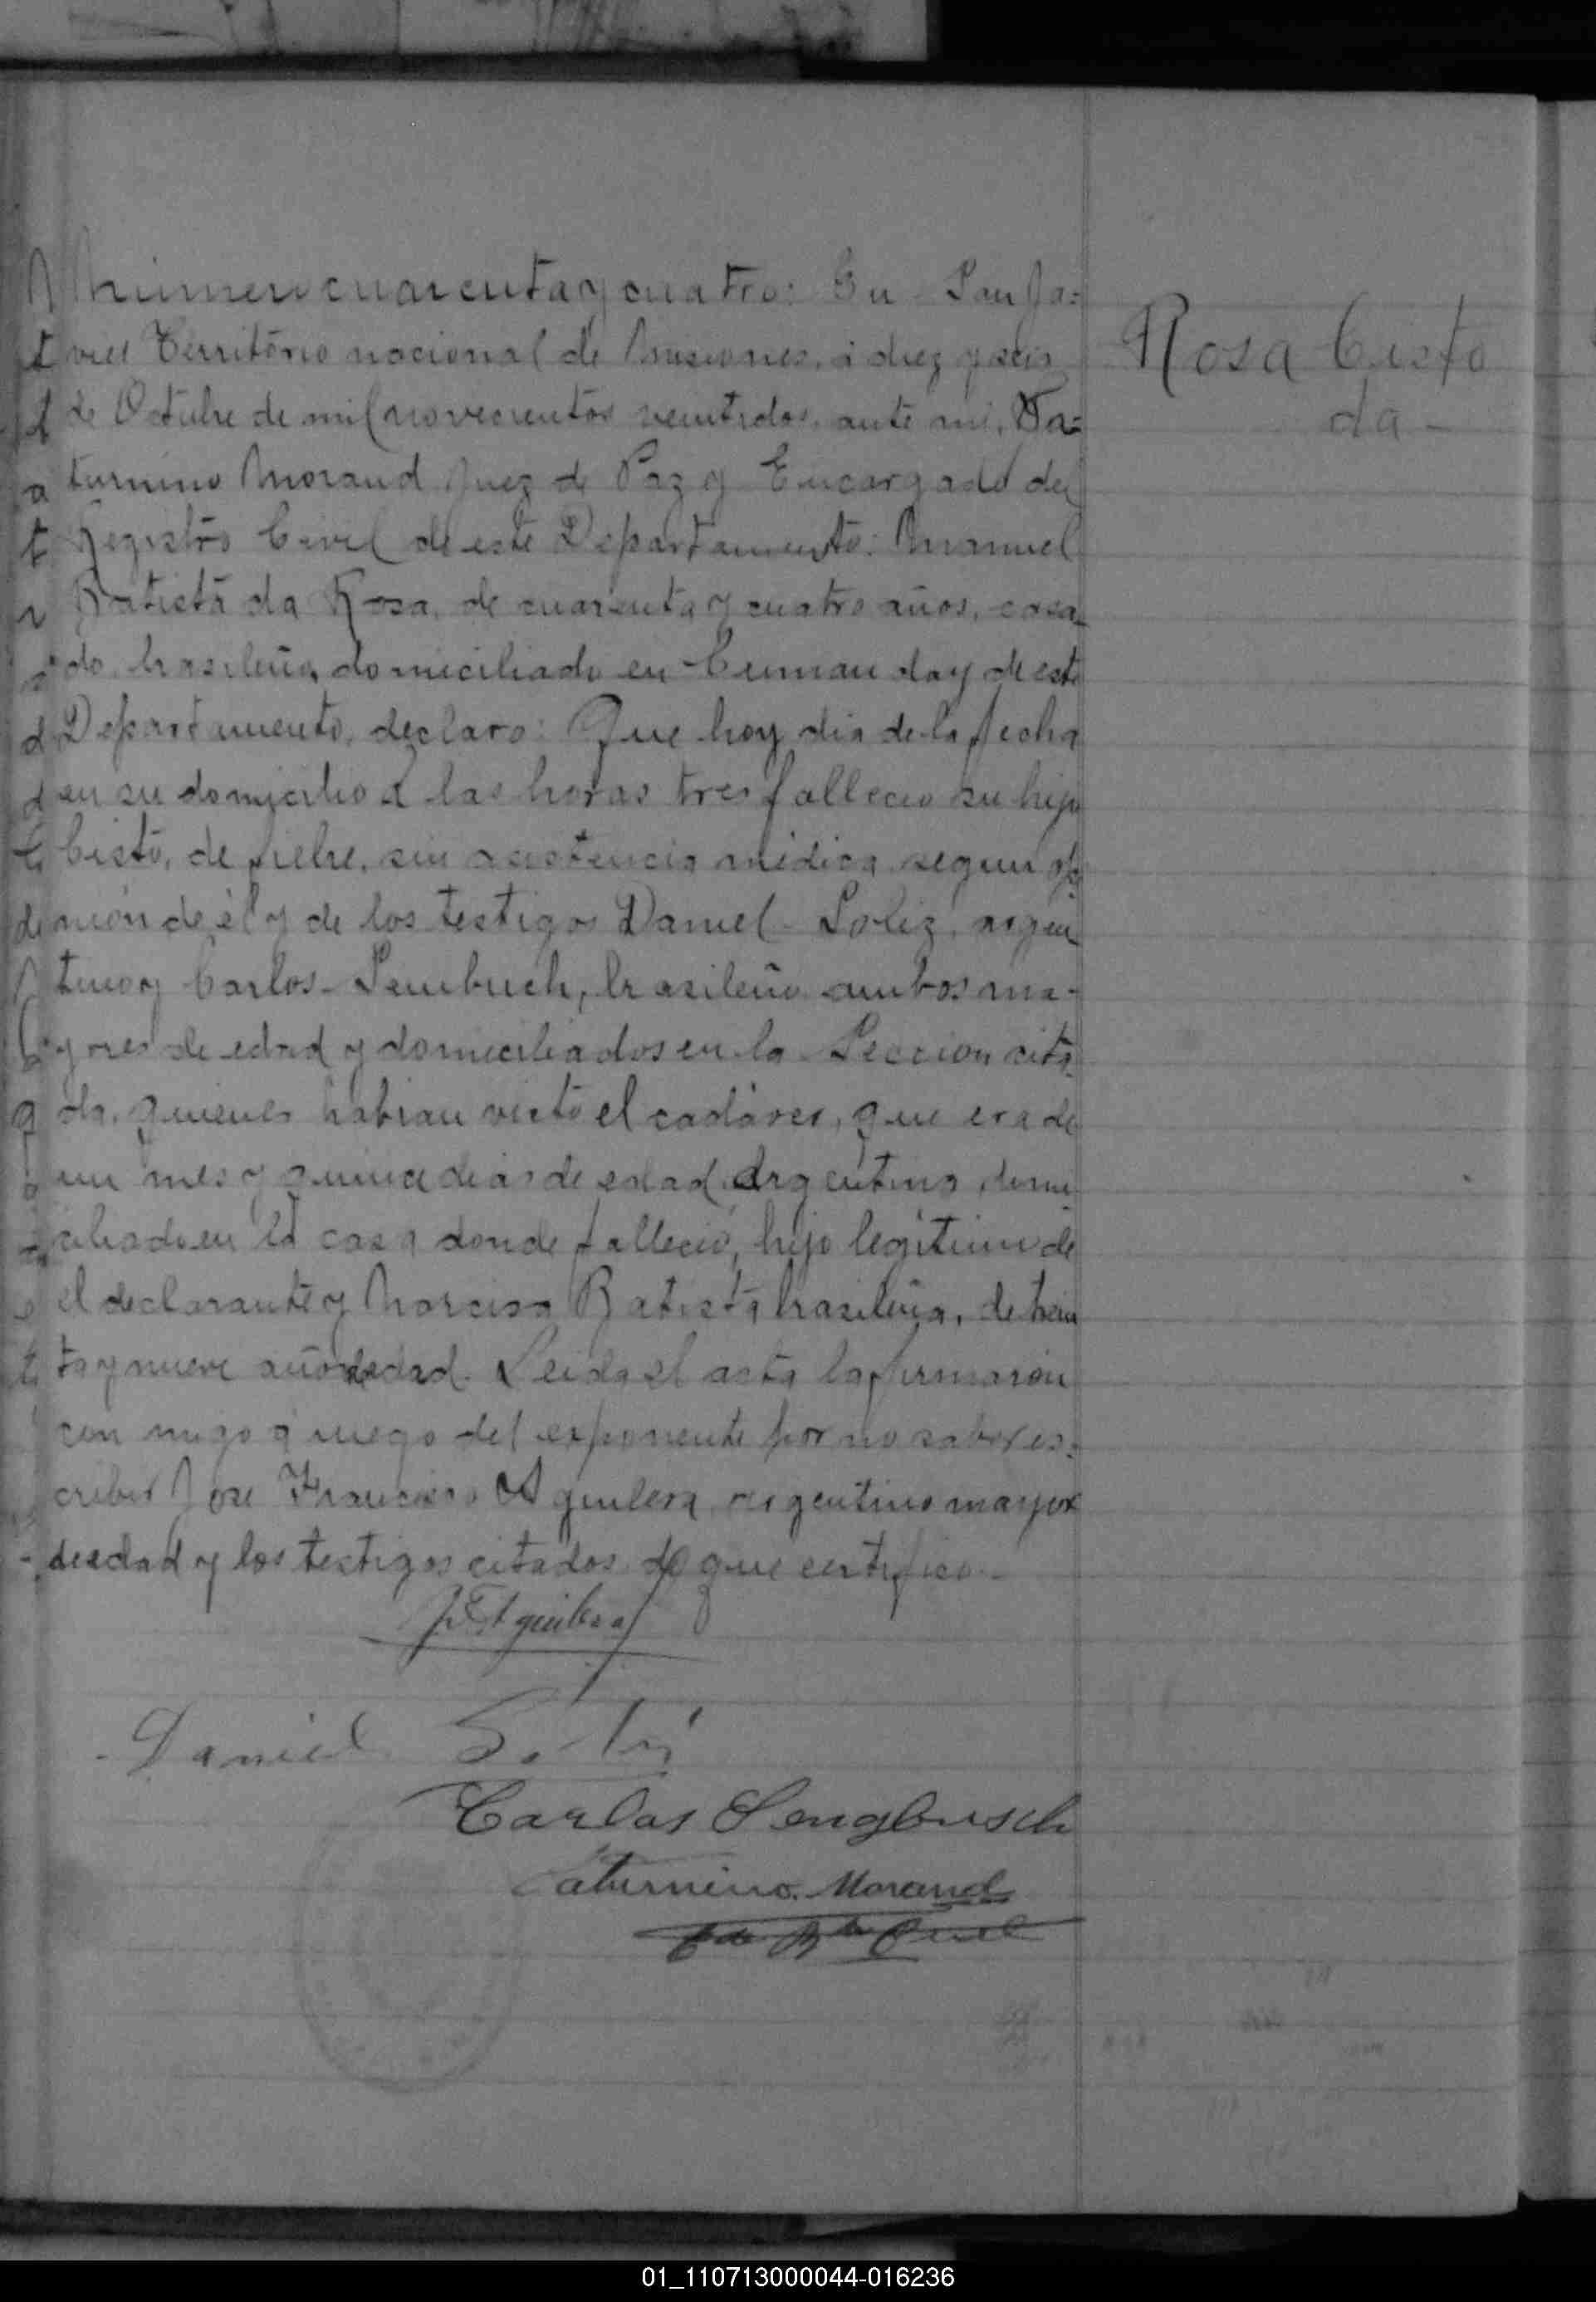 Número cuarenta y cuatro: En San Ja=
vier Território nacional de Misiones, á diez y seis
de Octubre de mil novecientos veintidos, ante mi, Sa=
turnino Morand Juez de Paz y Encargado del
Registro Civil de este Departamento: Manuel
Batista da Rosa, de cuarenta y cuatro años, casa
do, brasileño, domiciliado en Cumanday de este
Departamento, declaro: Que hoy dia de la fecha
en su domicilio á las horas tres fallecio su hijo
Cisto, de fiebre, sin asistencia médica segun opi
nión de él y de los testigos Daniel Soliz, argen
tino y Carlos Sembuch, brasileño ambos ma-
yores de edad y domiciliados en la Seccion cita
da, quienes habian visto el cadáver, que era de
un mes y quince dias de edad Argentino, domi
ciliado en la casa donde falleció, hijo legitimo de
el declarante y Narcisa Batista brasileña, de trein
ta y nueve años edad. Leida el acta la firmaron
con migo a ruego del exponente por no saber es=
cribir Jose Francisco Aguilera argentino mayor
de edad y los testigos citados de que certifico.-
Rosa Cisto
da -
J. F. Aguilera
Daniel
Carlos Sengbusch
Saturnino Morand
01_110713000044-016236